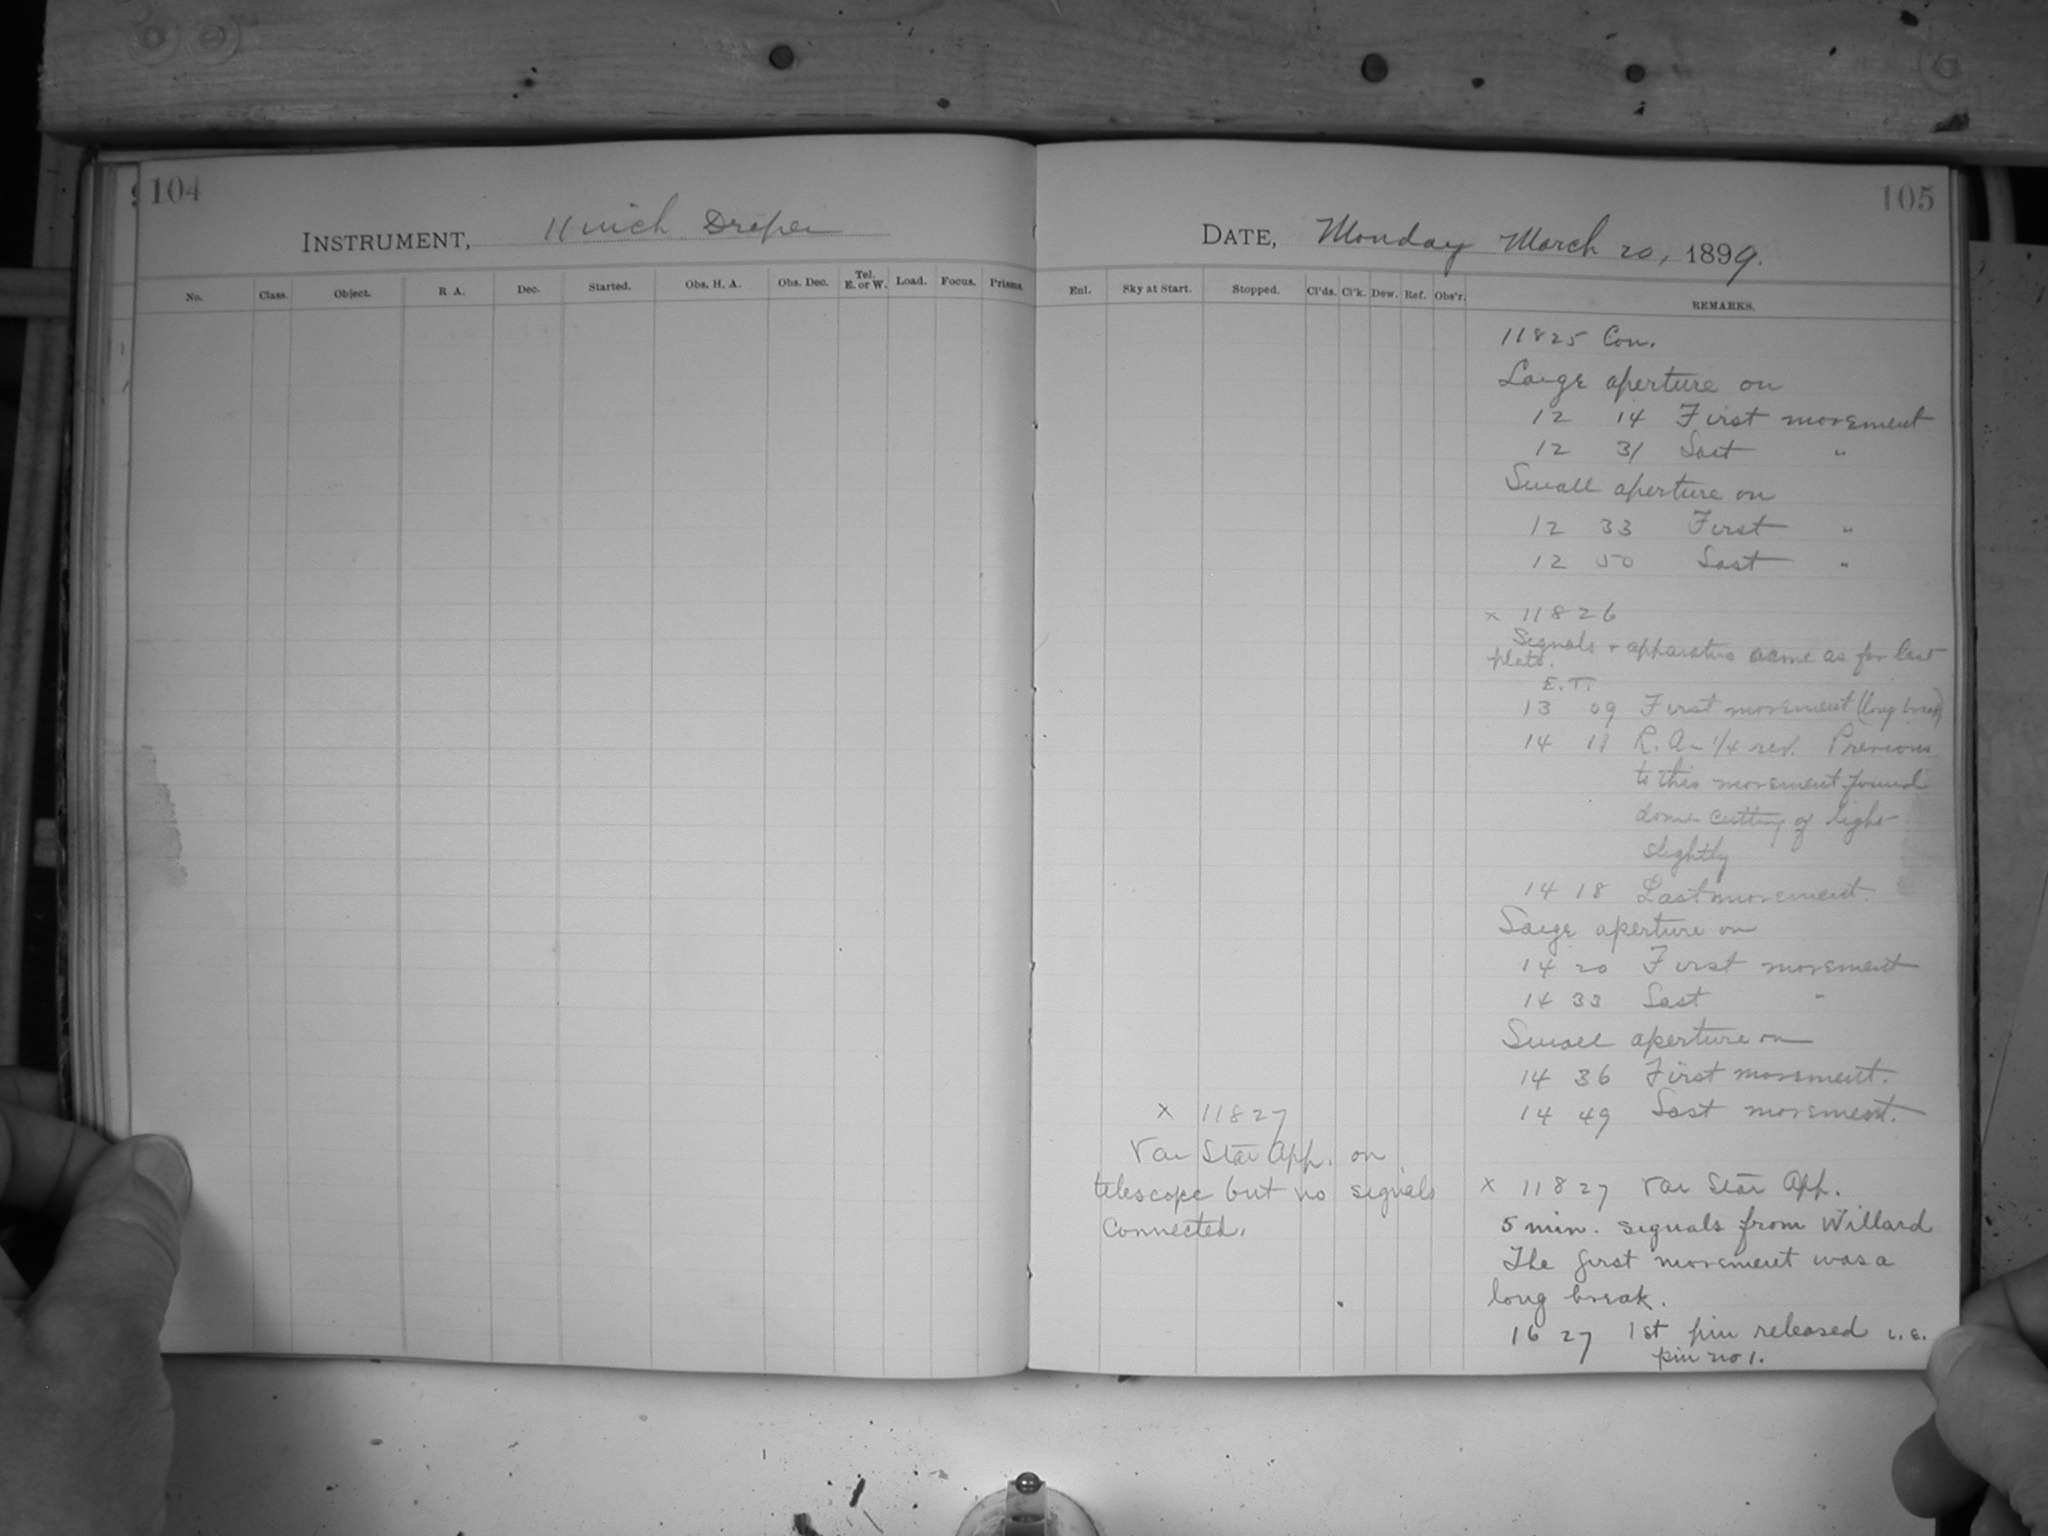 104
INSTRUMENT, 11 inch Draper
No. Class. Object. R A. Dec. Started. Obs. H. A. Obs. Dec. Tel. E. or W. Load. Focus. Prisms.
105
DATE, Monday March 20, 1899.
Enl. Sky at Start. Stopped. Cl'ds. Cl'k. Dew. Ref. Obs'r. REMARKS.
11825 Con.
Large aperture on
12 14 First movement
12 31 Last "
Small aperture on
12 33 First "
12 50 Last "
x 11826
Signals + apparatus same as for last
plate.
E. T.
13 09 First movement (long break)
14 11 R. A. 1/4 rev. Previous
to this movement found
dome cutting of light
slightly
14 18 Last movement.
Large aperture on
14 20 First movement
14 33 Last "
Small aperture on
14 36 First movement.
14 49 Last movement.
x 11827
Var Star App. on
telescope but no signals
connected.
x 11827 Var Star App.
5 min. signals from Willard
The first movement was a
long break.
16 27 1st pin released i.e.
pin no 1.